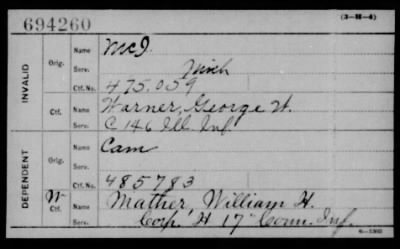 694260
(3-H-4)
INVALID
Orig.
Name McI.
Serv. Mich
Ctf. No. 475.059
Ctf.
Name Warner, George W.
Serv. C 146 Ill Inf.
DEPENDENT
Orig.
Name Cam
Serv.
Ctf. No. 485783
W
Ctf.
Name Mather, William H.
Serv. Corp' H 17" Conn. Inf.